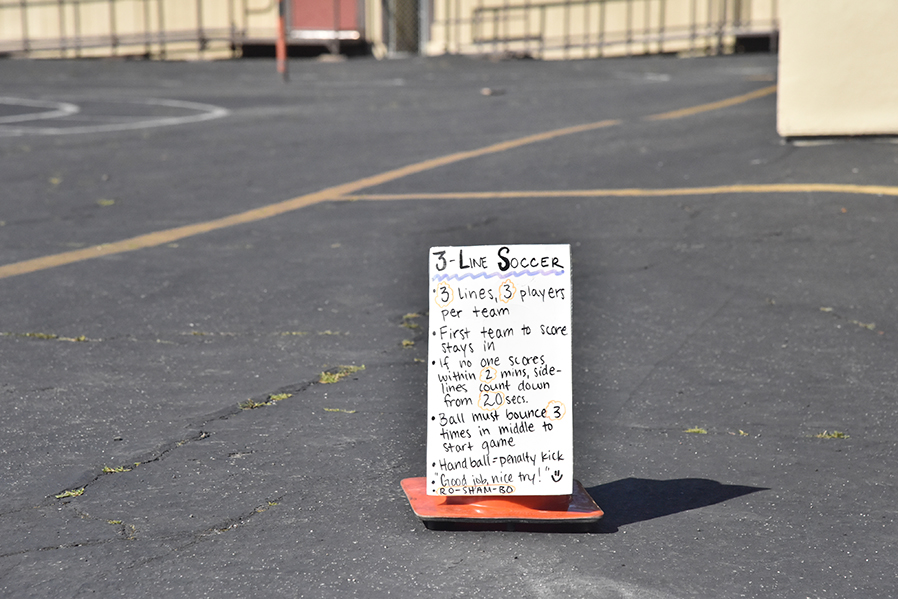 3-LINE SOCCER
• 3 lines, 3 players
per team
• First team to score
stays in
• If no one scores
within 2 mins, side-
lines count down
from 20 secs.
• Ball must bounce 3
times in middle to
start game
• Handball = penalty kick
• "Good job, nice try!"
• RO-SHAM-BO